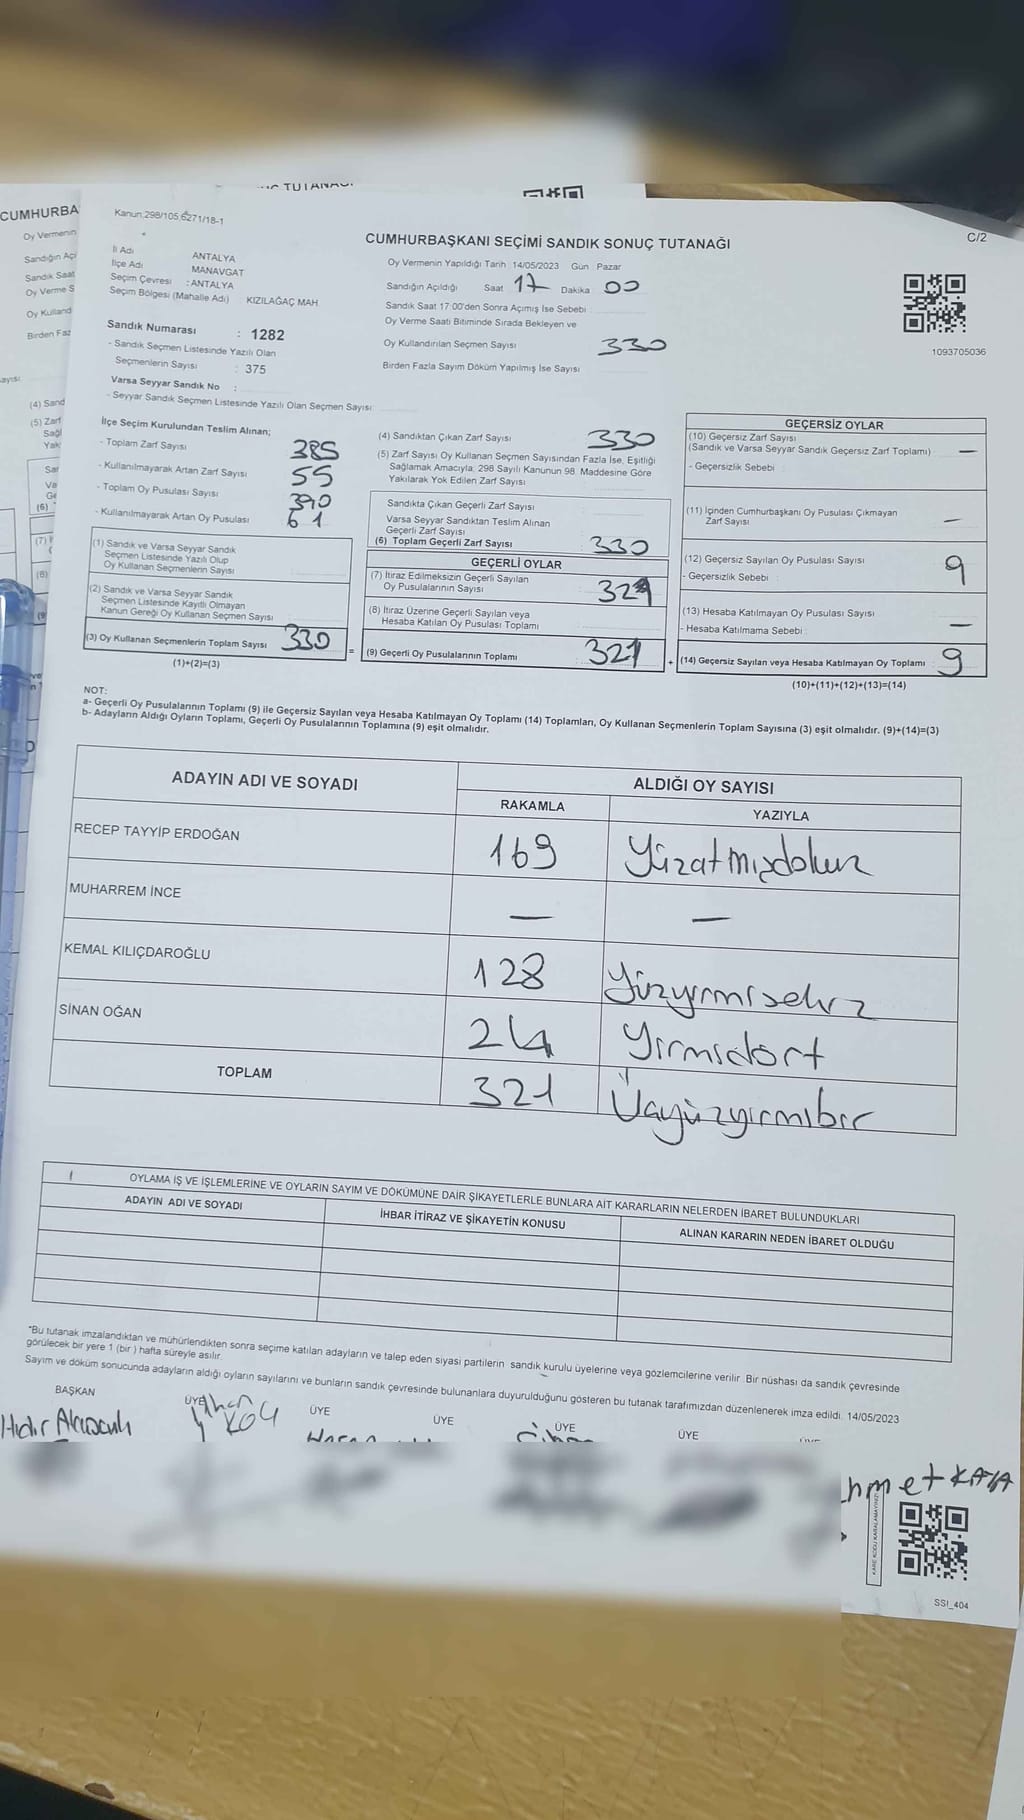 CUMHURBA
Oy Vermenin
Sandığın Açı
Sandık Saat
Oy Verme S
Oy Kulland
Birden Faz
ayısı
(4) Sand
(5) Zarf
Sağl
Yak
(6)
(7)
(8)
TUTANA
Kanun:298/105,6271/18-1
C/2
CUMHURBAŞKANI SEÇİMİ SANDIK SONUÇ TUTANAĞI
İl Adı ANTALYA
İlçe Adı MANAVGAT
Seçim Çevresi : ANTALYA
Seçim Bölgesi (Mahalle Adı) KIZILAĞAÇ MAH.
Oy Vermenin Yapıldığı Tarih 14/05/2023 Gün Pazar
Sandığın Açıldığı Saat 17 Dakika 00
Sandık Saat 17:00'den Sonra Açımış İse Sebebi
Oy Verme Saati Bitiminde Sırada Bekleyen ve
Oy Kullandırılan Seçmen Sayısı 330
Birden Fazla Sayım Döküm Yapılmış İse Sayısı
1093705036
Sandık Numarası : 1282
- Sandık Seçmen Listesinde Yazılı Olan
Seçmenlerin Sayısı : 375
Varsa Seyyar Sandık No :
- Seyyar Sandık Seçmen Listesinde Yazılı Olan Seçmen Sayısı:
İlçe Seçim Kurulundan Teslim Alınan;
- Toplam Zarf Sayısı 385
- Kullanılmayarak Artan Zarf Sayısı 55
- Toplam Oy Pusulası Sayısı 390
- Kullanılmayarak Artan Oy Pusulası 61
(1) Sandık ve Varsa Seyyar Sandık
Seçmen Listesinde Yazılı Olup
Oy Kullanan Seçmenlerin Sayısı
(2) Sandık ve Varsa Seyyar Sandık
Seçmen Listesinde Kayıtlı Olmayan
Kanun Gereği Oy Kullanan Seçmen Sayısı
(3) Oy Kullanan Seçmenlerin Toplam Sayısı 330
(1)+(2)=(3)
(4) Sandıktan Çıkan Zarf Sayısı 330
(5) Zarf Sayısı Oy Kullanan Seçmen Sayısından Fazla İse, Eşitliği
Sağlamak Amacıyla, 298 Sayılı Kanunun 98. Maddesine Göre
Yakılarak Yok Edilen Zarf Sayısı
Sandıkta Çıkan Geçerli Zarf Sayısı
Varsa Seyyar Sandıktan Teslim Alınan
Geçerli Zarf Sayısı
(6) Toplam Geçerli Zarf Sayısı 330
GEÇERLİ OYLAR
(7) İtiraz Edilmeksizin Geçerli Sayılan
Oy Pusulalarının Sayısı 321
(8) İtiraz Üzerine Geçerli Sayılan veya
Hesaba Katılan Oy Pusulası Toplamı
= (9) Geçerli Oy Pusulalarının Toplamı 321
GEÇERSİZ OYLAR
(10) Geçersiz Zarf Sayısı
(Sandık ve Varsa Seyyar Sandık Geçersiz Zarf Toplamı) —
- Geçersizlik Sebebi
(11) İçinden Cumhurbaşkanı Oy Pusulası Çıkmayan
Zarf Sayısı —
(12) Geçersiz Sayılan Oy Pusulası Sayısı 9
- Geçersizlik Sebebi :
(13) Hesaba Katılmayan Oy Pusulası Sayısı —
- Hesaba Katılmama Sebebi
+ (14) Geçersiz Sayılan veya Hesaba Katılmayan Oy Toplamı 9
(10)+(11)+(12)+(13)=(14)
NOT:
a- Geçerli Oy Pusulalarının Toplamı (9) ile Geçersiz Sayılan veya Hesaba Katılmayan Oy Toplamı (14) Toplamları, Oy Kullanan Seçmenlerin Toplam Sayısına (3) eşit olmalıdır. (9)+(14)=(3)
b- Adayların Aldığı Oyların Toplamı, Geçerli Oy Pusulalarının Toplamına (9) eşit olmalıdır.
ADAYIN ADI VE SOYADI ALDIĞI OY SAYISI
RAKAMLA YAZIYLA
RECEP TAYYİP ERDOĞAN 169 Yüzatmışdokuz
MUHARREM İNCE — —
KEMAL KILIÇDAROĞLU 128 Yüzyirmisekiz
SİNAN OĞAN 24 Yirmidört
TOPLAM 321 Üçyüzyirmibir
OYLAMA İŞ VE İŞLEMLERİNE VE OYLARIN SAYIM VE DÖKÜMÜNE DAİR ŞİKAYETLERLE BUNLARA AİT KARARLARIN NELERDEN İBARET BULUNDUKLARI
ADAYIN ADI VE SOYADI İHBAR İTİRAZ VE ŞİKAYETİN KONUSU ALINAN KARARIN NEDEN İBARET OLDUĞU
"Bu tutanak imzalandıktan ve mühürlendikten sonra seçime katılan adayların ve talep eden siyasi partilerin sandık kurulu üyelerine veya gözlemcilerine verilir. Bir nüshası da sandık çevresinde
görülecek bir yere 1 (bir) hafta süreyle asılır.
Sayım ve döküm sonucunda adayların aldığı oyların sayılarını ve bunların sandık çevresinde bulunanlara duyurulduğunu gösteren bu tutanak tarafımızdan düzenlenerek imza edildi. 14/05/2023
BAŞKAN ÜYE ÜYE ÜYE ÜYE ÜYE
Hıdır
KOÇ
hmet KAYA
KARE KODU KARALAMAYINIZ!
SSI_404